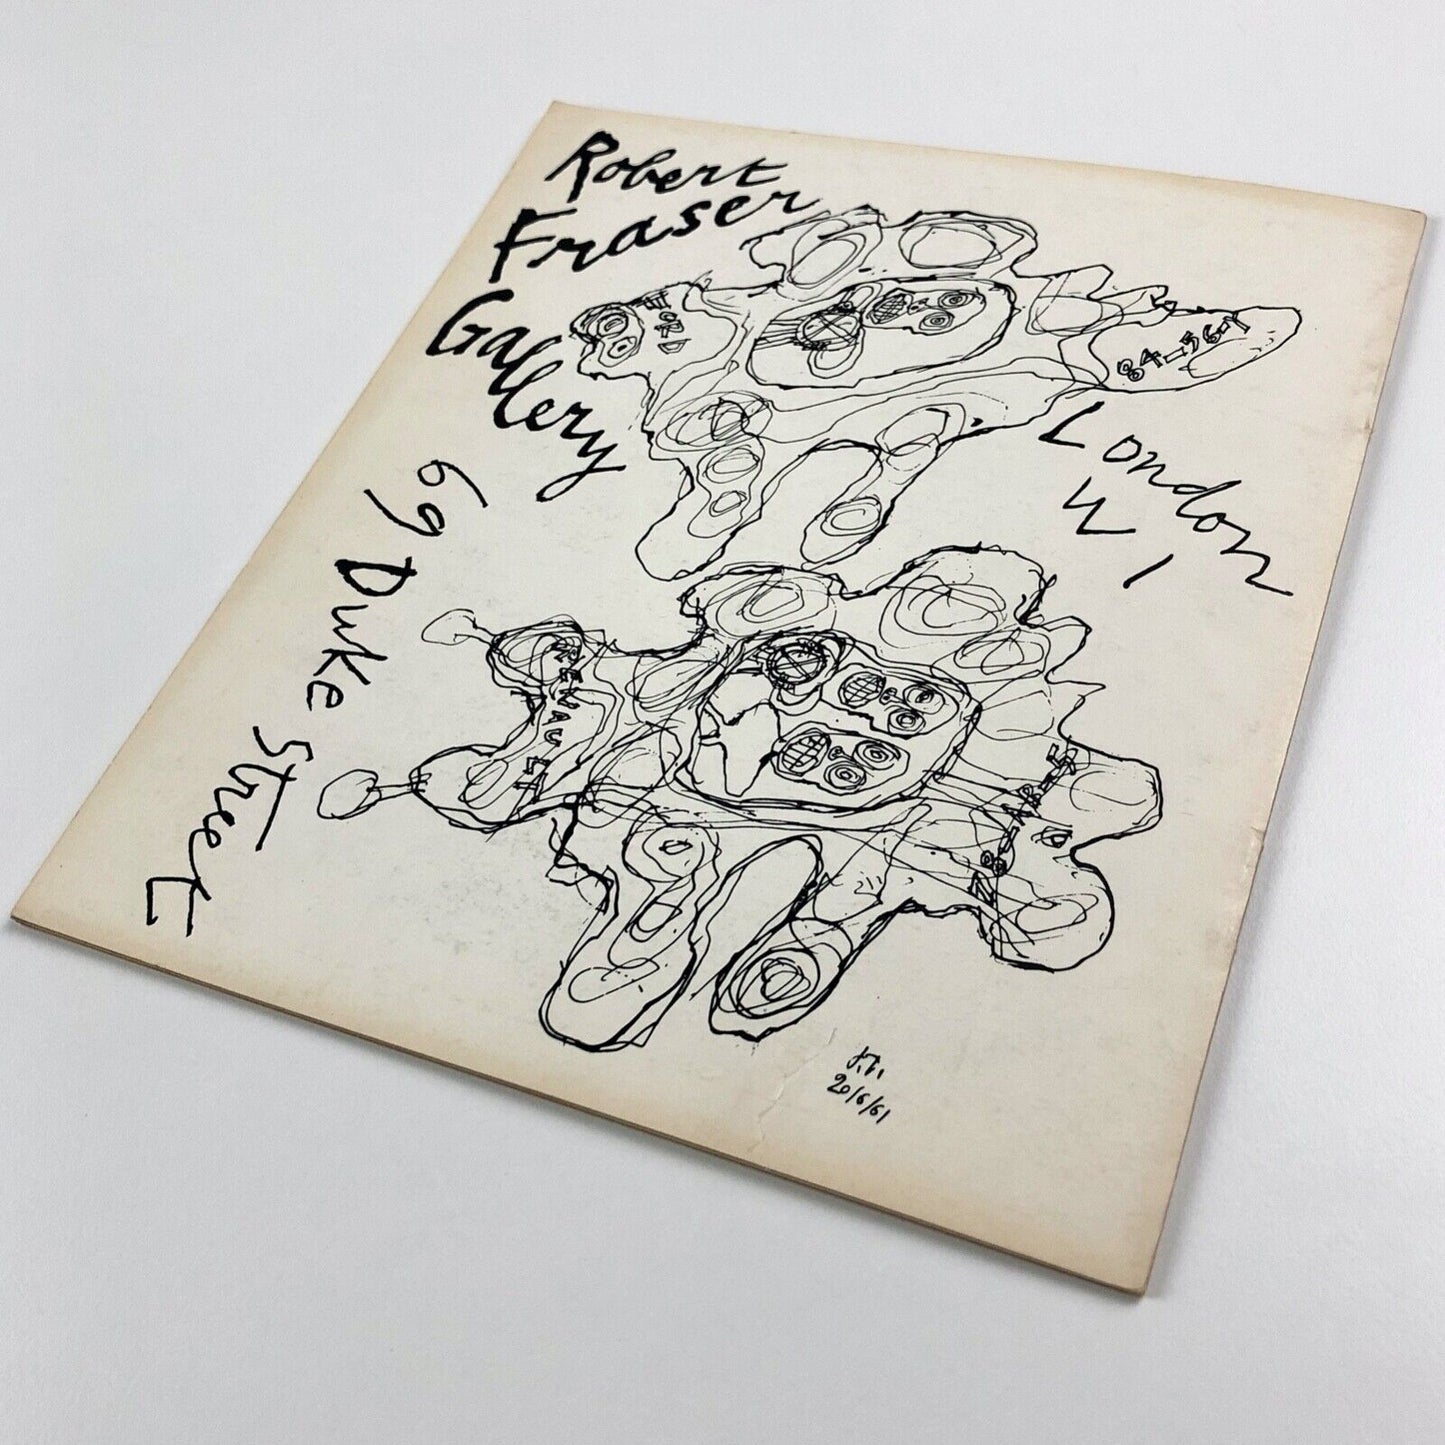 Robert
Fraser
Gallery
69 Duke Street
London
W1
FORD
84-56-T
RENAULT
20/6/61